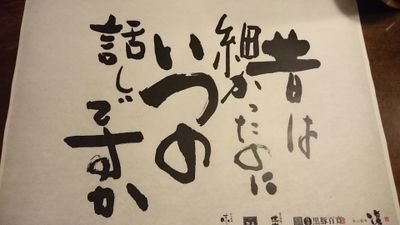 昔は
細かったのに
いつの
話しですか
黒豚百寛